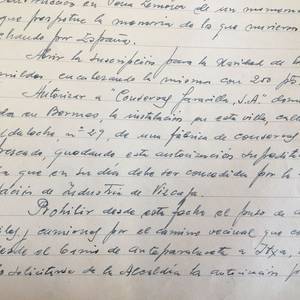 en Vova Lemovor de un momento
que perpetúe la memoria de los que murieron
luchando por España.
Abrir la suscripción para la Navidad de los
humildes, encabezando la misma con 200 pts.
Autorizar a "Conservas Garavilla, S.A" domi
da en Bermeo, la instalación en esta villa, calle
nº 29, de una fábrica de conservas
escado, quedando esta autorización supedita
a que en su día debe ser concedida por la
gación de Industria de Vizcaya.
Prohibir desde esta fecha el paso de ca
y camiones por el camino vecinal que co
desde el barrio de Anteparaluceta a Itxa,
solicitarse de la Alcaldía la autorización p